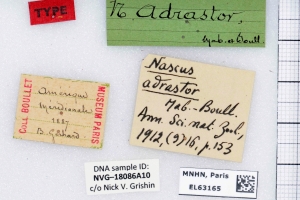 TYPE
N Adrastor,
Mab. et Boull.
COLL BOULLET
Amérique
Méridionale
1887
B. Gérard
MUSEUM PARIS
Nascus
adrastor
Mab.-Boull.
Ann. Sci. nat. Zool.,
1912, (9) 16, p. 153
DNA sample ID:
NVG-18086A10
c/o Nick V. Grishin
MNHN, Paris
EL63165